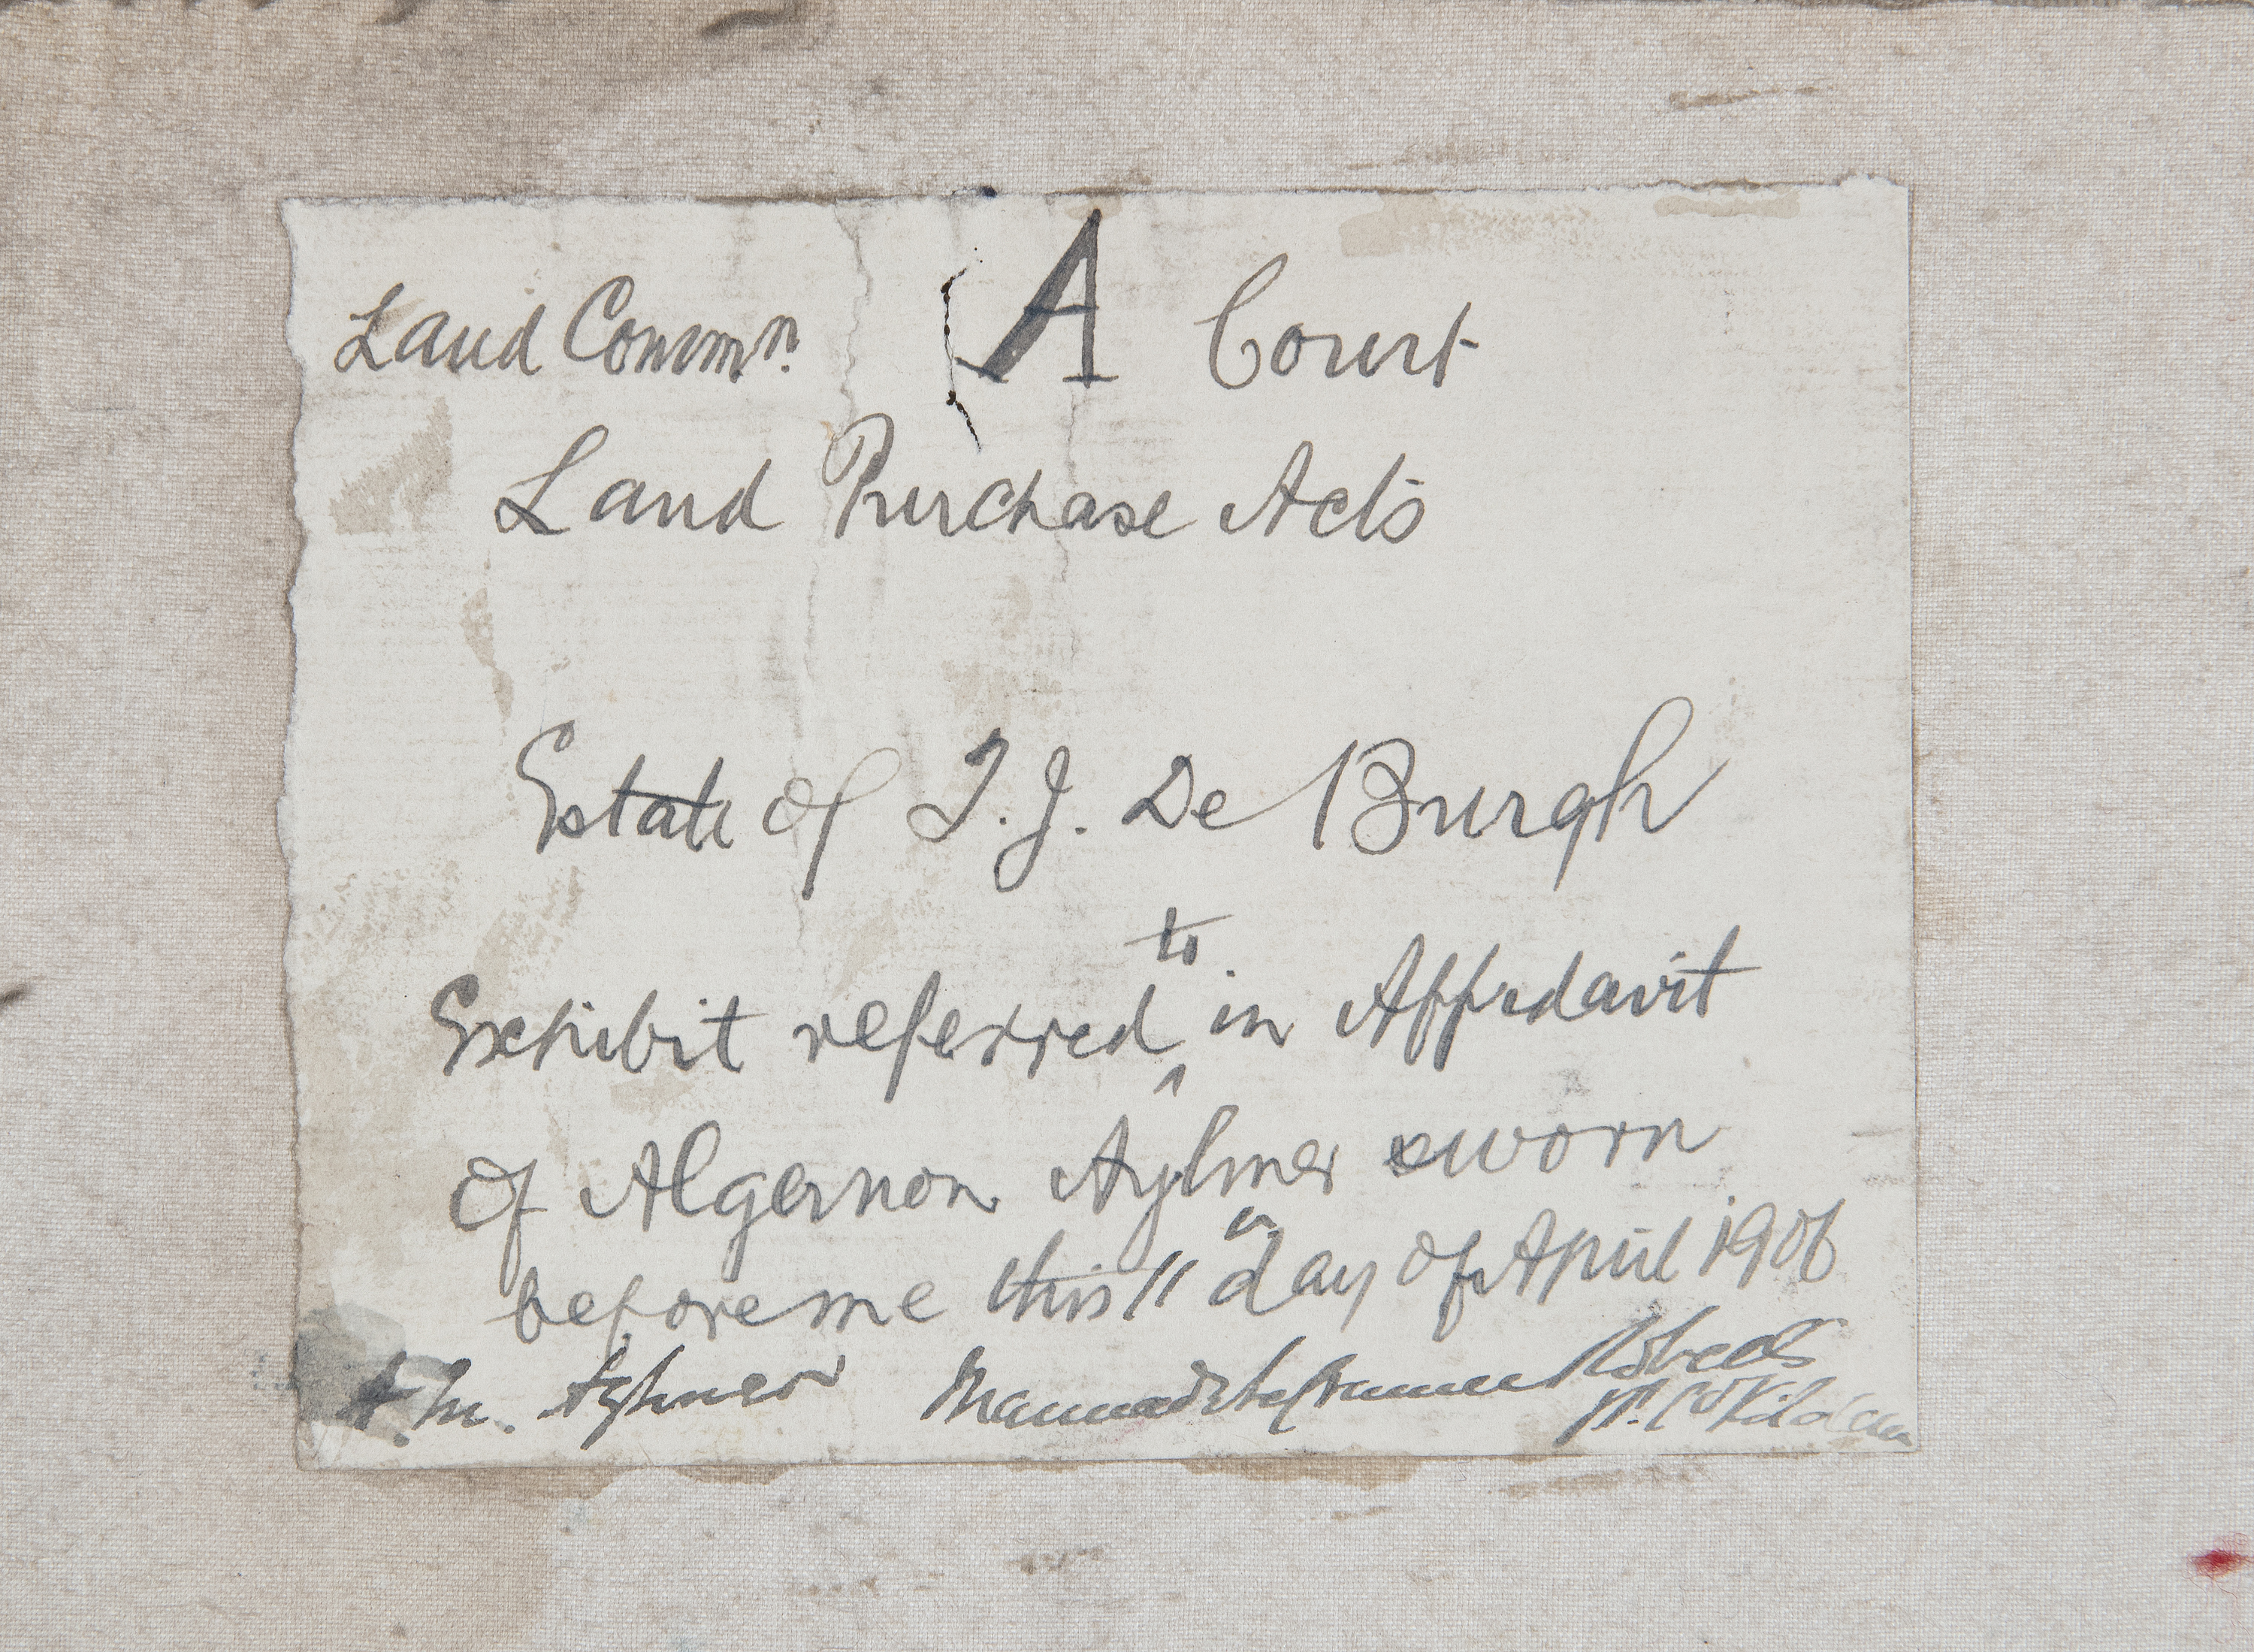 Land Commn. A Court
Land Purchase Acts
Estate of T. J. De Burgh
to
Exhibit referred ^ in Affidavit
of Algernon Aylmer sworn
before me this 11th day of April 1906
A. M. Aylmer